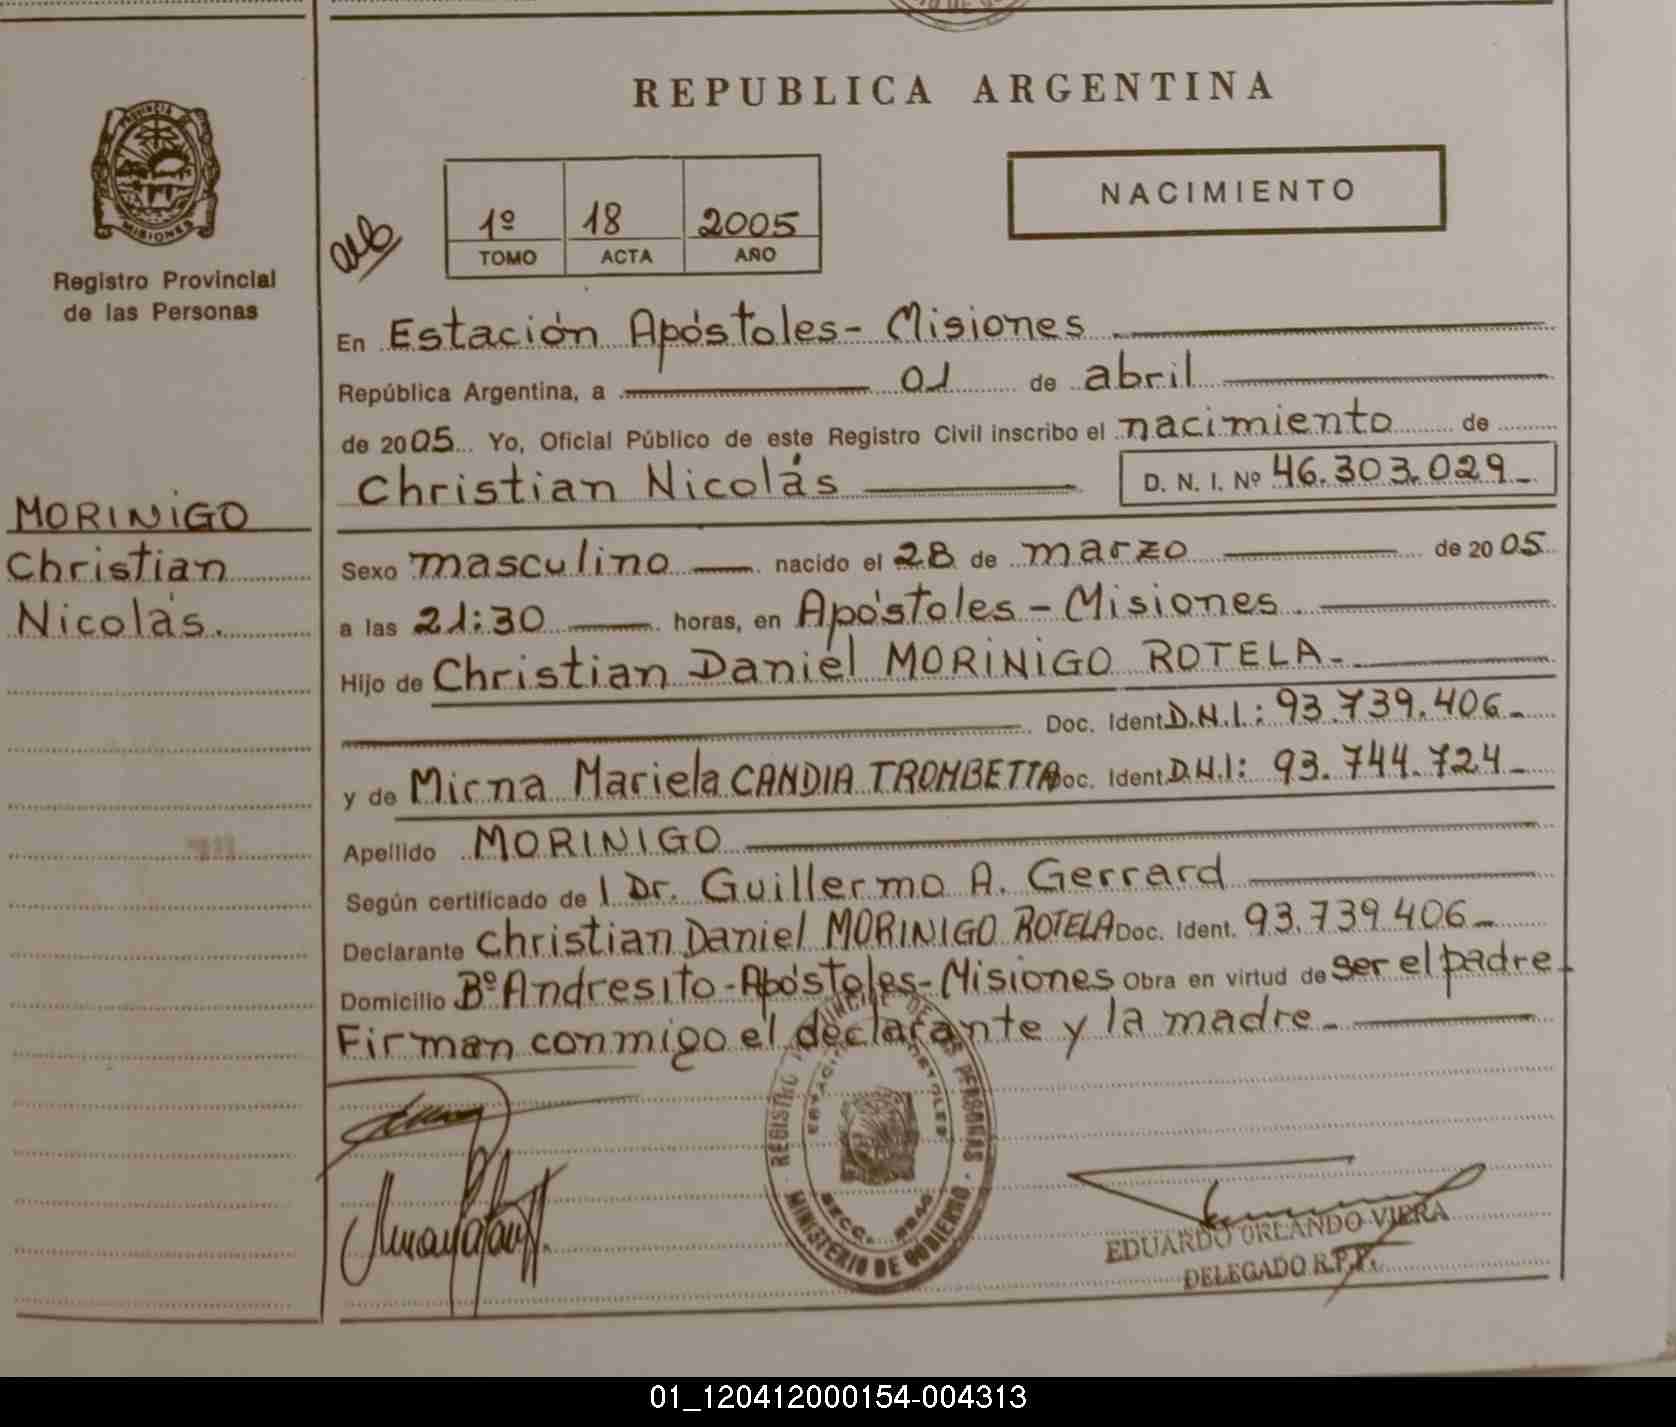 REPUBLICA ARGENTINA
NACIMIENTO
1º 18 2005
TOMO ACTA AÑO
PROVINCIA DE
MISIONES
Registro Provincial
de las Personas
MORINIGO
Christian
Nicolás.
En Estación Apóstoles - Misiones
República Argentina, a 01 de abril
de 2005 Yo, Oficial Público de este Registro Civil inscribo el nacimiento de
Christian Nicolás D. N. I. Nº 46.303.029
Sexo masculino nacido el 28 de marzo de 2005
a las 21:30 horas, en Apóstoles - Misiones
Hijo de Christian Daniel MORINIGO ROTELA
Doc. Ident. D.N.I.: 93.739.406
y de Mirna Mariela CANDIA TROMBETTA Doc. Ident. D.N.I: 93.744.724
Apellido MORINIGO
Según certificado de l Dr. Guillermo A. Gerrard
Declarante Christian Daniel MORINIGO ROTELA Doc. Ident. 93.739.406
Domicilio Bº Andresito - Apóstoles - Misiones Obra en virtud de ser el padre
Firman conmigo el declarante y la madre
REGISTRO PROVINCIAL DE LAS PERSONAS
MINISTERIO DE GOBIERNO
EDUARDO ORLANDO VIERA
DELEGADO R.P.P.
01_120412000154-004313